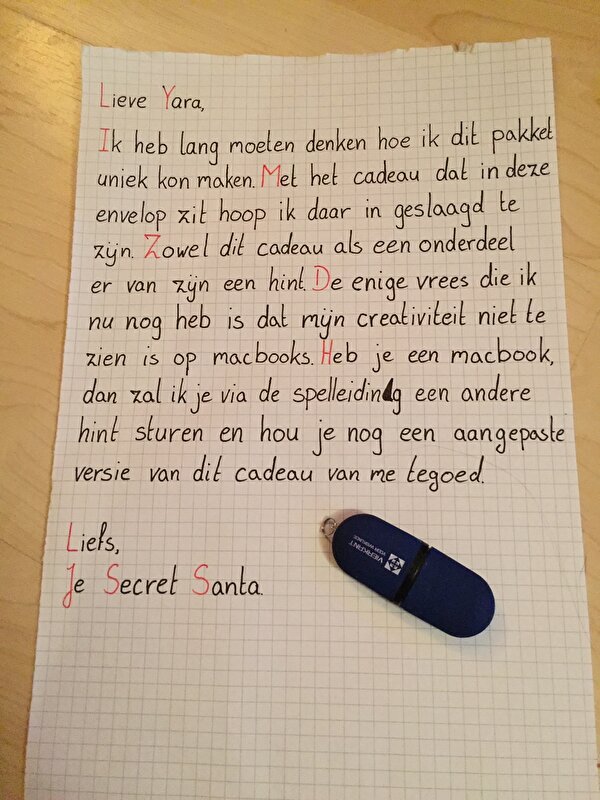 Lieve Yara,
Ik heb lang moeten denken hoe ik dit pakket
uniek kon maken. Met het cadeau dat in deze
envelop zit hoop ik daar in geslaagd te
zijn. Zowel dit cadeau als een onderdeel
er van zijn een hint. De enige vrees die ik
nu nog heb is dat mijn creativiteit niet te
zien is op macbooks. Heb je een macbook,
dan zal ik je via de spelleiding een andere
hint sturen en hou je nog een aangepaste
versie van dit cadeau van me tegoed.
Liefs,
Je Secret Santa.
VIERKANT
VOOR WISKUNDE